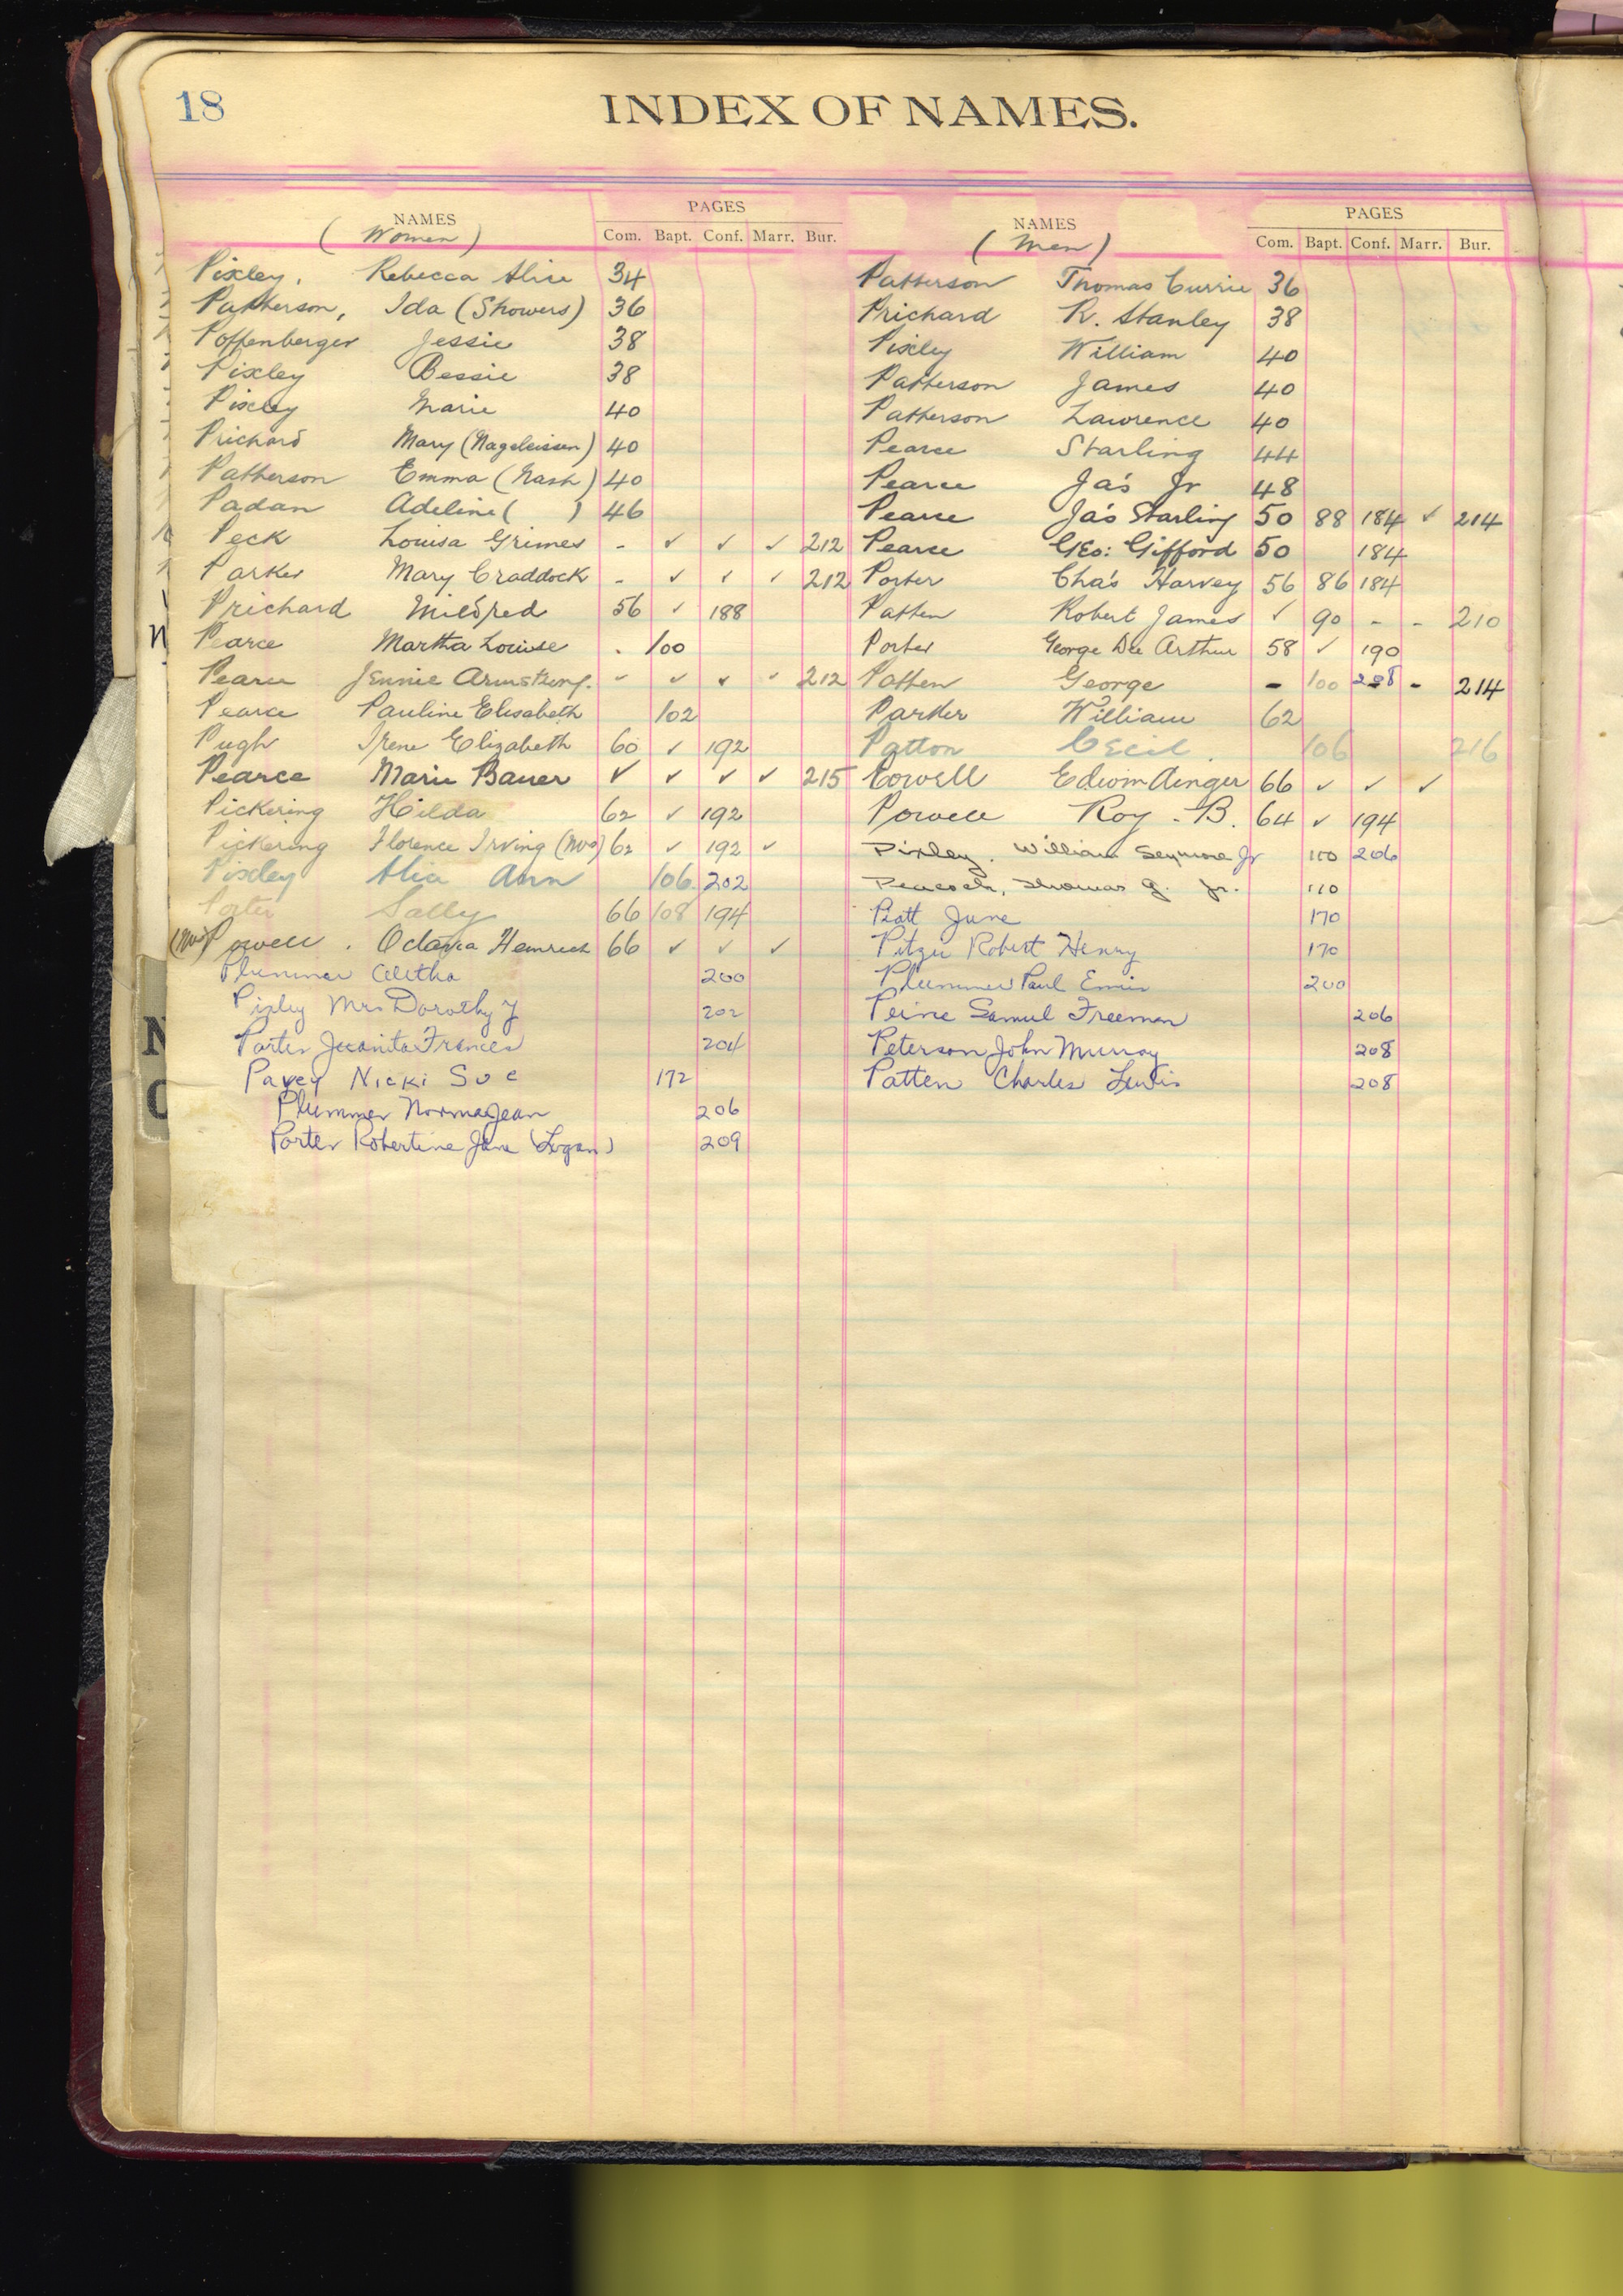 18
INDEX OF NAMES.
NAMES PAGES
(Women) Com. Bapt. Conf. Marr. Bur.
Pixley, Rebecca Alice 34
Patterson, Ida (Showers) 36
Poffenberger Jessie 38
Pixley Bessie 38
Pixley Marie 40
Prichard Mary (Nageleissen) 40
Patterson Emma (Nash) 40
Padan Adeline ( ) 46
Peck Louisa Grimes - ✓ ✓ ✓ 212
Parker Mary Craddock - ✓ ✓ ✓ 212
Prichard Mildred 56 ✓ 188
N Pearce Martha Louise . 100
Pearce Jennie Armstrong. ✓ ✓ ✓ ✓ 212
Pearce Pauline Elisabeth 102
Pugh Irene Elizabeth 60 ✓ 192
Pearce Marie Bauer ✓ ✓ ✓ ✓ 215
Pickering Hilda 62 ✓ 192
Pickering Florence Irving (Mrs) 62 ✓ 192 ✓
Pixley Alice Ann 106 202
Porter Sally 66 108 194
(Mrs) Powell . Octavia Hemrech 66 ✓ ✓ ✓
Plummer Aletha 200
Pixley Mrs Dorothy J 202
Porter Juanita Frances 204
Pavey Nicki Sue 172
Plummer Norma Jean 206
Porter Robertine Jane (Logan) 209
NAMES PAGES
(Men) Com. Bapt. Conf. Marr. Bur.
Patterson Thomas Currie 36
Prichard R. Stanley 38
Pixley William 40
Patterson James 40
Patterson Lawrence 40
Pearce Starling 44
Pearce Ja's Jr 48
Pearce Ja's Starling 50 88 184 ✓ 214
Pearce Geo: Gifford 50 184
Porter Cha's Harvey 56 86 184
Patten Robert James ✓ 90 - - 210
Porter George Dee Arthur 58 ✓ 190
Patten George - 100 208 - 214
Parker William 62
Patton Cecil 106 216
Powell Edwin Ainger 66 ✓ ✓ ✓
Powell Roy . B. 64 ✓ 194
Pixley. William Seymore Jr 110 206
Peacock, Thomas G. Jr. 110
Pratt June 170
Pitzer Robert Henry 170
Plummer Paul Emin 200
Peine Samuel Freeman 206
Peterson John Murray 208
Patten Charles Lewis 208